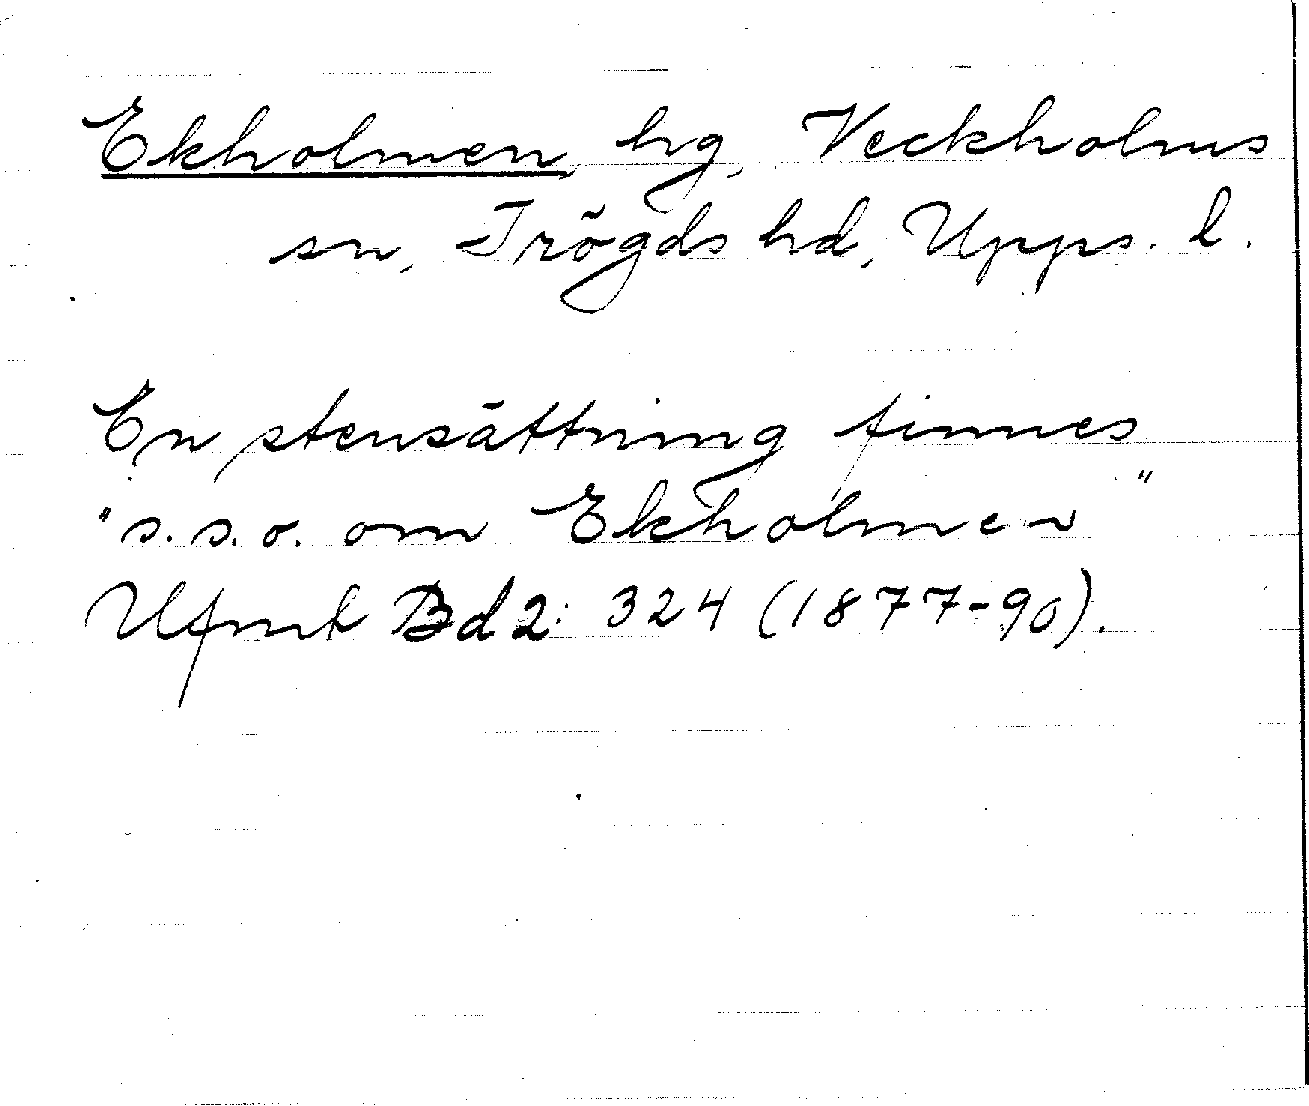 Ekholmen hg, Veckholms
sn, Trögds hd, Upps. l.
En stensättning finnes
"s.s.o. om Ekholmen"
Ufmt Bd 2: 324 (1877-90).